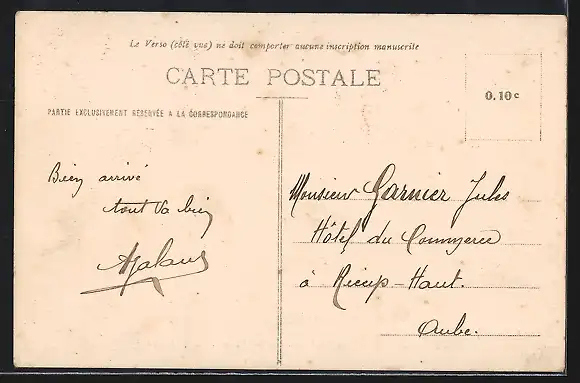 Le Verso (côté vue) ne doit comporter aucune inscription manuscrite
CARTE POSTALE
0.10c
PARTIE EXCLUSIVEMENT RÉSERVÉE A LA CORRESPONDANCE
Bien arrivé
tout va bien
Monsieur Garnier Jules
Hôtel du Commerce
à Ricey-Haut.
Aube.